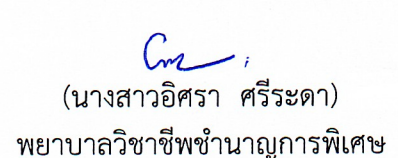 (นางสาวอิศรา ศรีระดา)
พยาบาลวิชาชีพชำนาญการพิเศษ